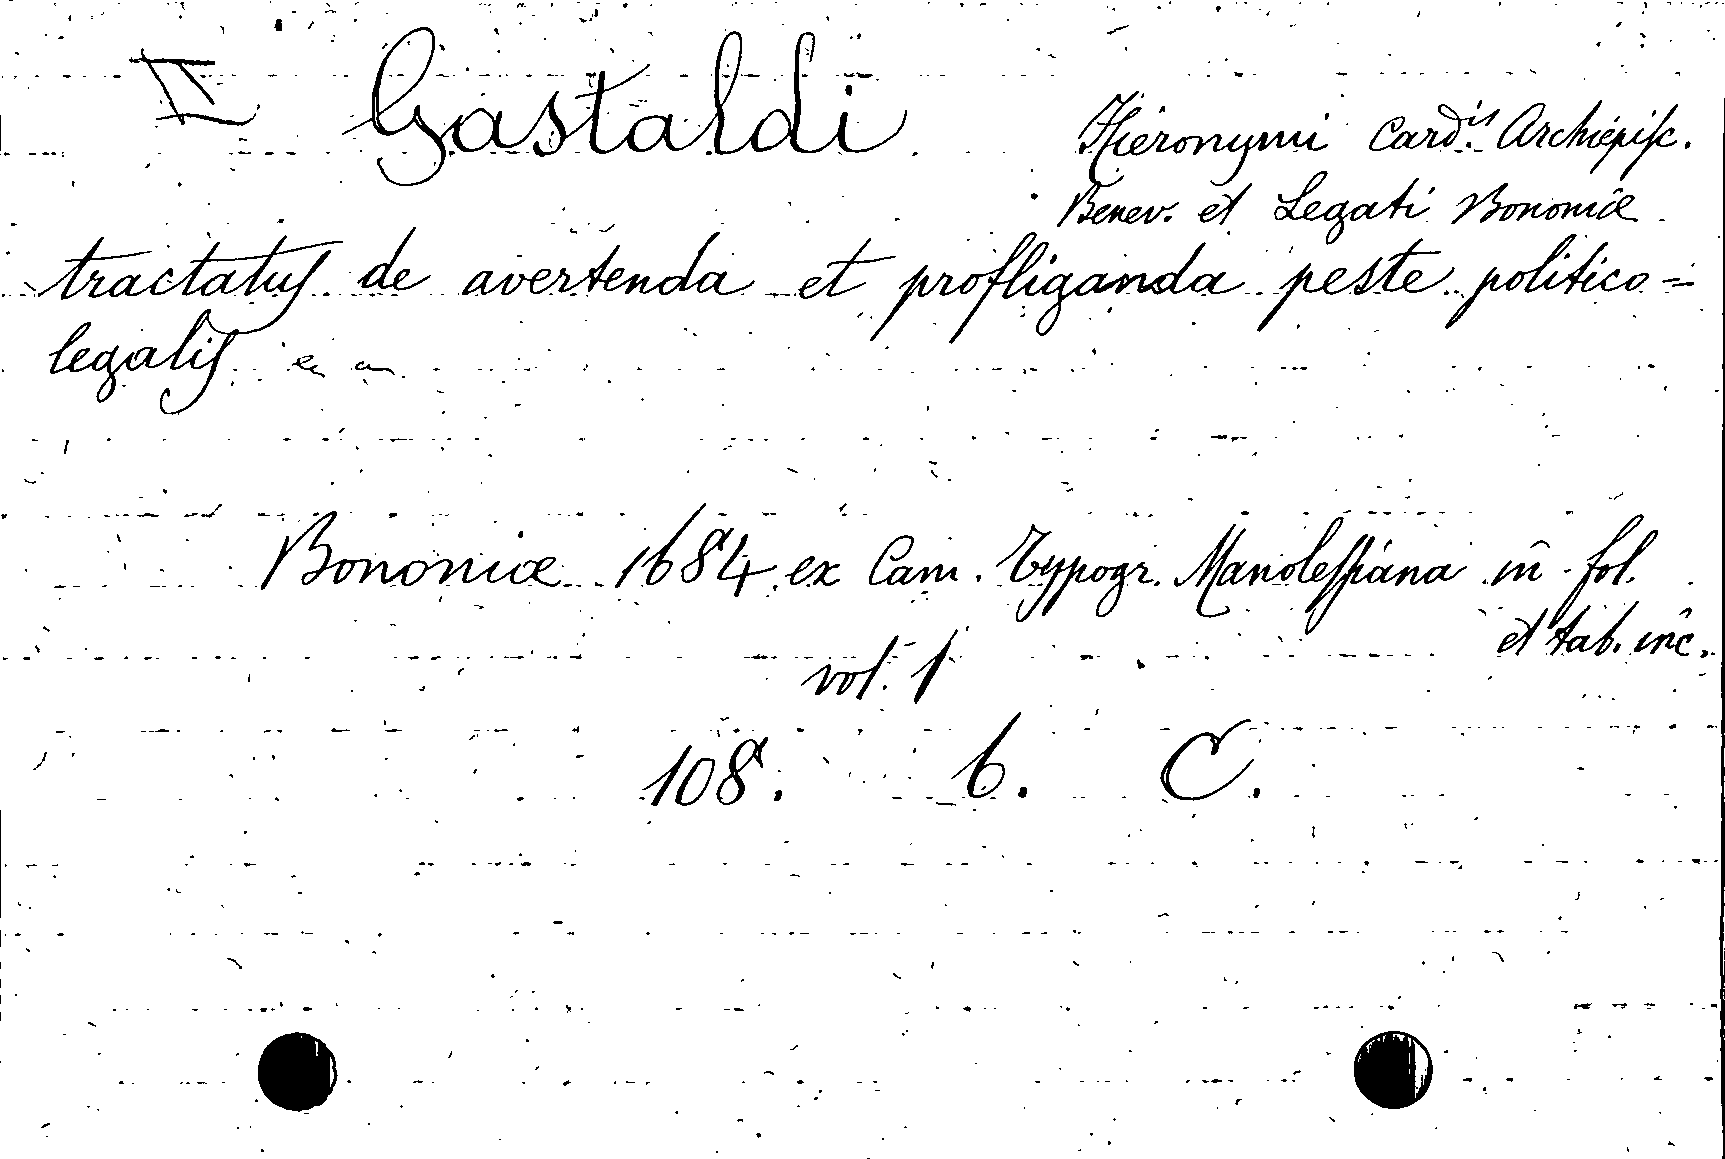 II Gastaldi Hieronymi Card.is Archiepisc.
Benev. et Legati Bononiæ
tractatus de avertenda et profliganda peste politico=
legalis
Bononiæ 1684 ex Cam. Typogr. Manolessiana in fol.
et tab. inc.
vol. 1
108. b. C.